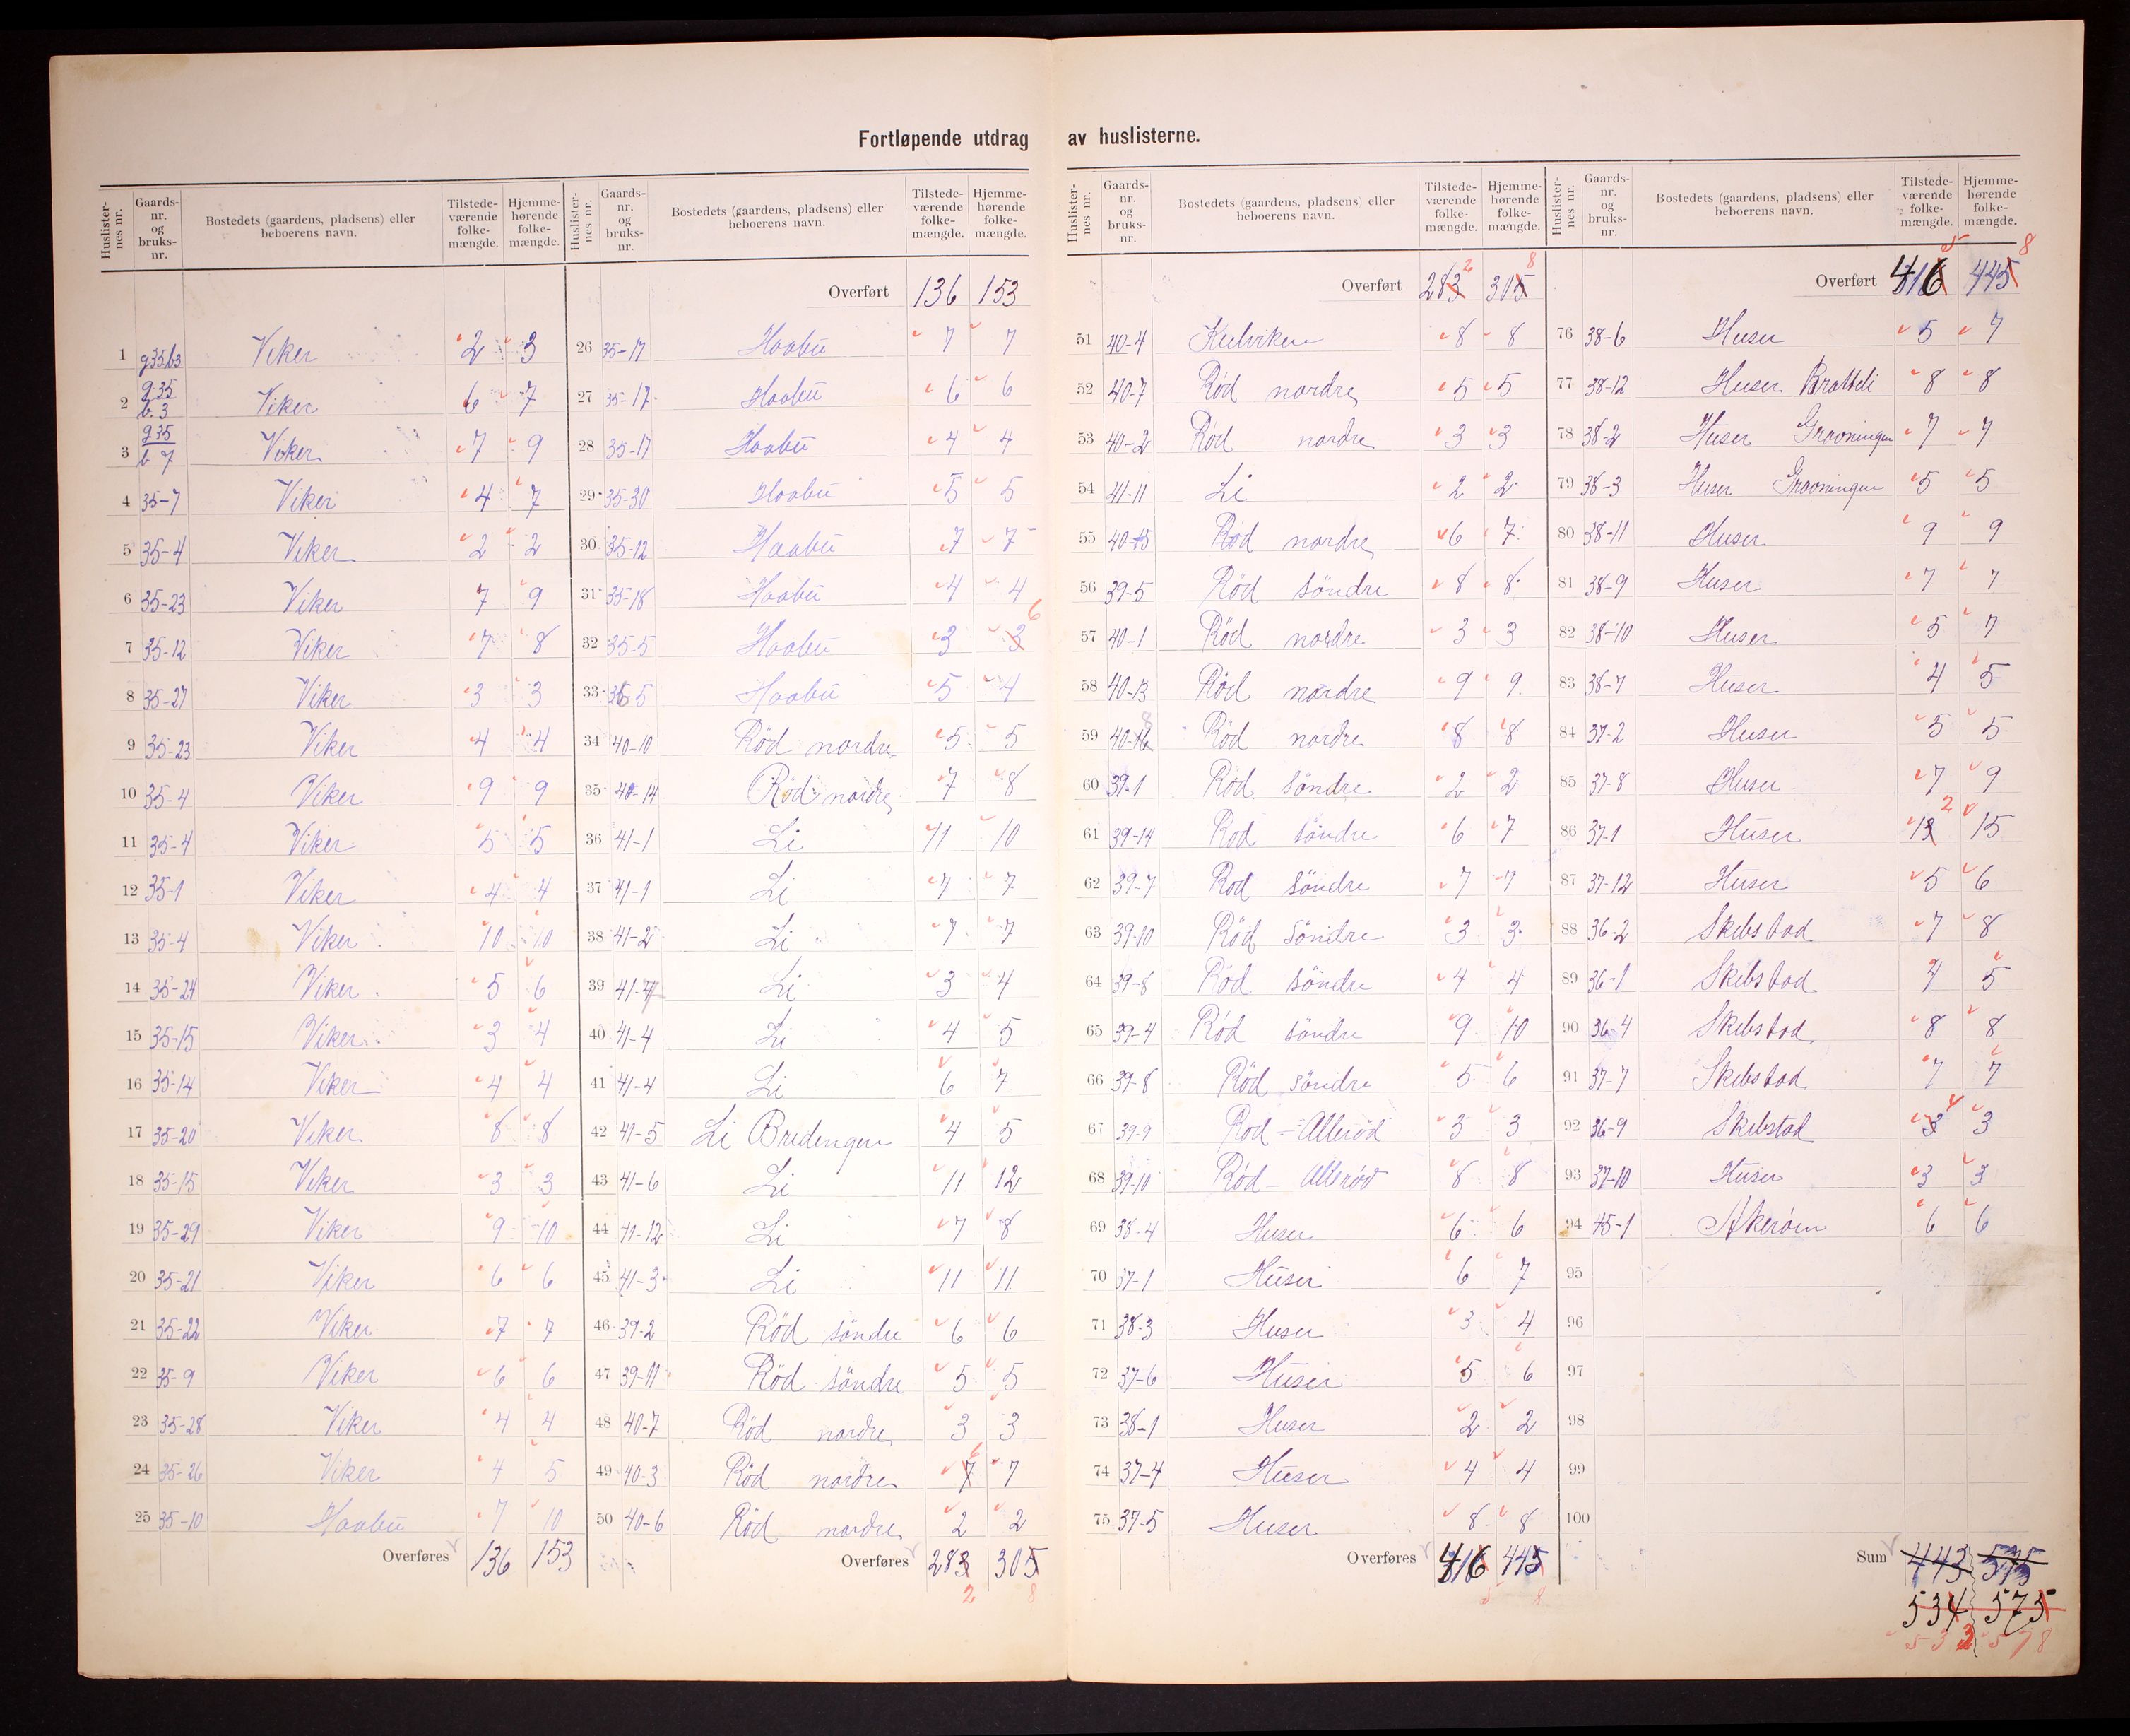 Fortløpende utdrag av huslisterne.
Huslister-nes nr. Gaards-nr. og bruks-nr. Bostedets (gaardens, pladsens) eller beboerens navn. Tilstede-værende folke-mængde. Hjemme-hørende folke-mængde.
1 g35b3 Viker 2 3
2 g35 b.3 Viker 6 7
3 g35 b 7 Viker 7 9
4 35-7 Viker 4 7
5 35-4 Viker 2 2
6 35-23 Viker 7 9
7 35-12 Viker 7 8
8 35-27 Viker 3 3
9 35-23 Viker 4 4
10 35-4 Viker 9 9
11 35-4 Viker 5 5
12 35-1 Viker 4 4
13 35-4 Viker 10 10
14 35-24 Viker 5 6
15 35-15 Viker 3 4
16 35-14 Viker 4 4
17 35-20 Viker 8 8
18 35-15 Viker 3 3
19 35-29 Viker 9 10
20 35-21 Viker 6 6
21 35-22 Viker 7 7
22 35-9 Viker 6 6
23 35-28 Viker 4 4
24 35-26 Viker 4 5
25 35-10 Haabu 7 10
Overføres 136 153
Huslister-nes nr. Gaards-nr. og bruks-nr. Bostedets (gaardens, pladsens) eller beboerens navn. Tilstede-værende folke-mængde. Hjemme-hørende folke-mængde.
Overført 136 153
26 35-17 Haabu 7 7
27 35-17 Haabu 6 6
28 35-17 Haabu 4 4
29 35-30 Haabu 5 5
30 35-12 Haabu 7 7
31 35-18 Haabu 4 4
32 35-5 Haabu 3 3 6
33 35-5 Haabu 5 4
34 40-10 Röd nordre 5 5
35 40-14 Röd nordre 7 8
36 41-1 Li 11 10
37 41-1 Li 7 7
38 41-2 Li 7 7
39 41- Li 3 4
40 41-4 Li 4 5
41 41-4 Li 6 7
42 41-5 Li Bredengen 4 5
43 41-6 Li 11 12
44 41-12 Li 7 8
45 41-3 Li 11 11
46 39-2 Röd söndre 6 6
47 39-11 Röd söndre 5 5
48 40-7 Röd nordre 3 3
49 40-3 Röd nordre 7 6 7
50 40-6 Röd nordre 2 2
Overføres 283 305
2 8
Huslister-nes nr. Gaards-nr. og bruks-nr. Bostedets (gaardens, pladsens) eller beboerens navn. Tilstede-værende folke-mængde. Hjemme-hørende folke-mængde.
Overført 283 2 305 8
51 40-4 Kulviken 8 8
52 40-7 Röd nordre 5 5
53 40-2 Röd nordre 3 3
54 41-11 Li 2 2
55 40-15 Röd nordre 6 7
56 39-5 Röd söndre 8 8
57 40-1 Röd nordre 3 3
58 40-13 Röd nordre 9 9
59 40- 8 Röd nordre 8 8
60 39-1 Röd söndre 2 2
61 39-14 Röd söndre 6 7
62 39-7 Röd söndre 7 7
63 39-10 Röd söndre 3 3
64 39-8 Röd söndre 4 4
65 39-4 Röd söndre 9 10
66 39-8 Röd söndre 5 6
67 39-9 Röd - Alleröd 3 3
68 39-10 Röd - Alleröd 8 8
69 38-4 Huser 6 6
70 37-1 Huser 6 7
71 38-3 Huser 3 4
72 37-6 Huser 5 6
73 38-1 Huser 2 2
74 37-4 Huser 4 4
75 37-5 Huser 8 8
Overføres 416 445
5 8
Huslister-nes nr. Gaards-nr. og bruks-nr. Bostedets (gaardens, pladsens) eller beboerens navn. Tilstede-værende folke-mængde. Hjemme-hørende folke-mængde.
Overført 416 5 445 8
76 38-6 Huser 5 7
77 38-12 Huser Bratteli 8 8
78 38-2 Huser Graaningen 7 7
79 38-3 Huser Graaningen 5 5
80 38-11 Huser 9 9
81 38-9 Huser 7 7
82 38-10 Huser 5 7
83 38-7 Huser 4 5
84 37-2 Huser 5 5
85 37-8 Huser 7 9
86 37-1 Huser 13 2 15
87 37-12 Huser 5 6
88 36-2 Skibstad 7 8
89 36-1 Skibstad 4 5
90 36-4 Skibstad 8 8
91 37-7 Skibstad 7 7
92 36-9 Skibstad 3 4 3
93 37-10 Huser 3 3
94 45-1 Akeröen 6 6
95
96
97
98
99
100
Sum 443 575
534 575
533 578